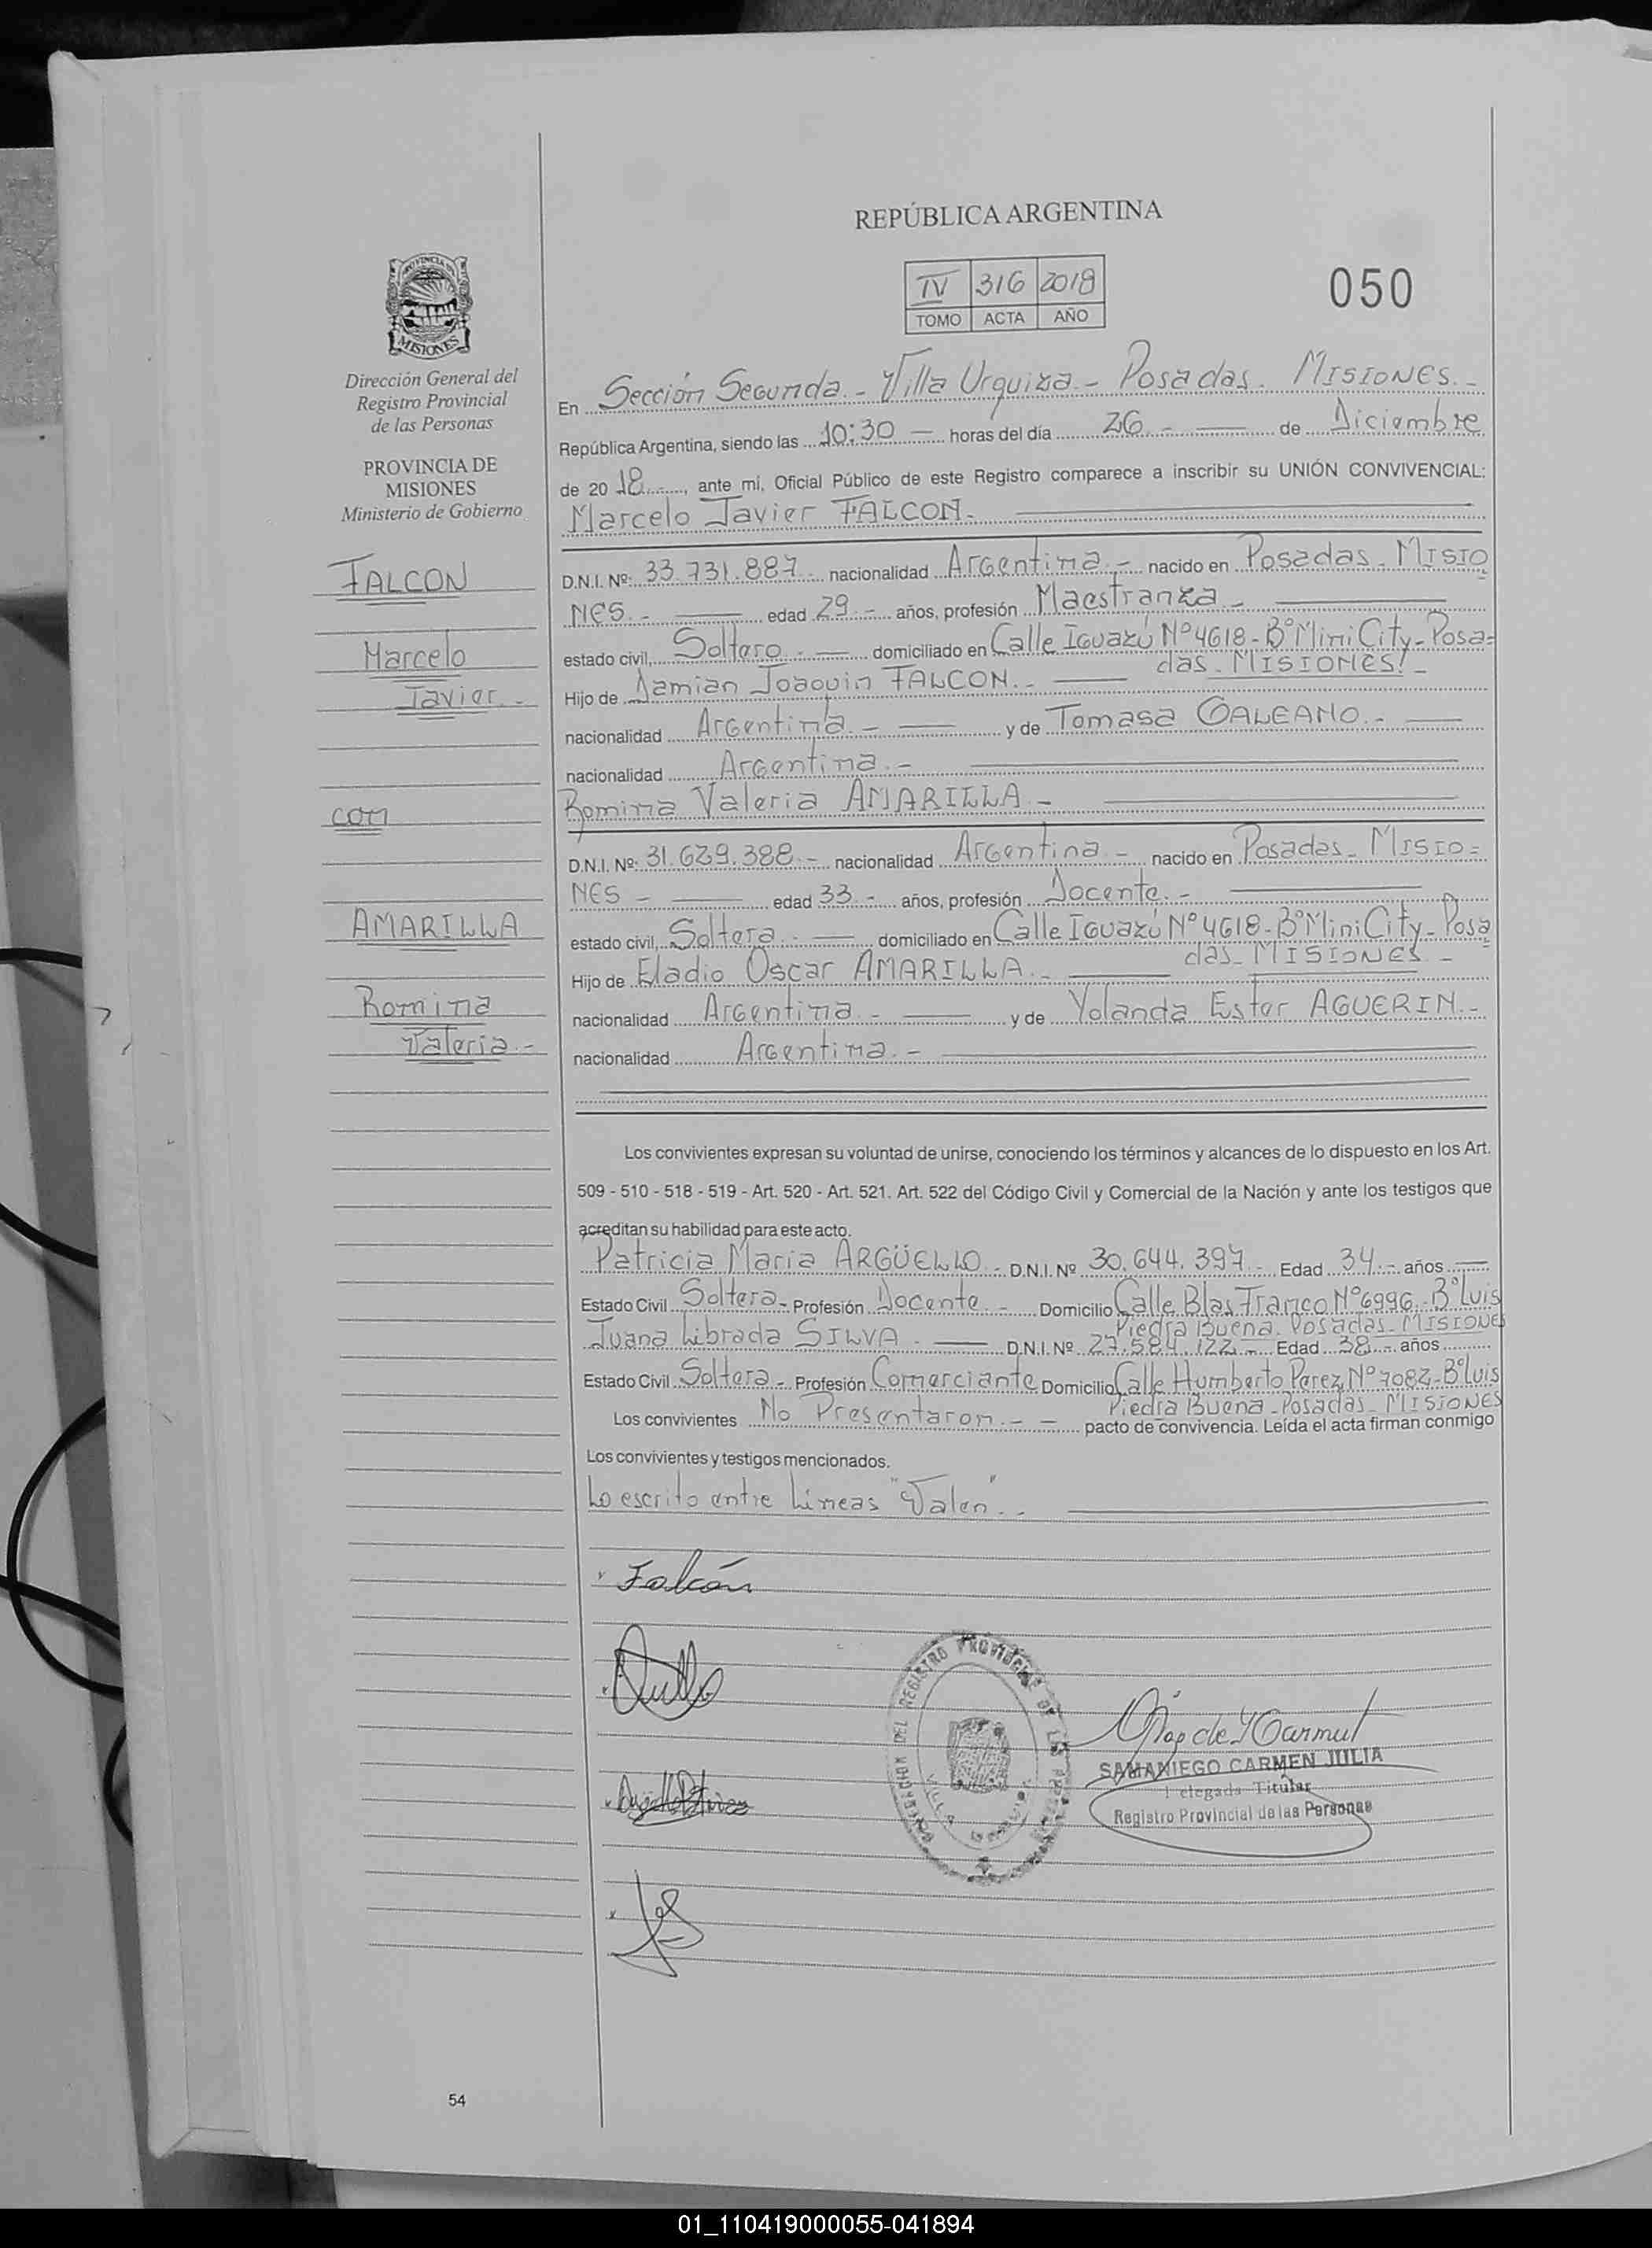 REPÚBLICA ARGENTINA
IV 316 2018
TOMO ACTA AÑO
050
PROVINCIA DE
MISIONES
Dirección General del
Registro Provincial
de las Personas
PROVINCIA DE
MISIONES
Ministerio de Gobierno
FALCON
Marcelo
Javier.-
con
AMARILLA
Romina
Valeria.-
En Sección Segunda.- Villa Urquiza.- Posadas. MISIONES.-
República Argentina, siendo las 10:30 — horas del día 26.- — de Diciembre
de 20 18.-, ante mí, Oficial Público de este Registro comparece a inscribir su UNIÓN CONVIVENCIAL:
Marcelo Javier FALCON.-
D.N.I. Nº: 33.731.887.- nacionalidad Argentina.- nacido en Posadas - MISIO
NES.- — edad 29.- años, profesión Maestranza.-
estado civil, Soltero.- — domiciliado en Calle Iguazú Nº 4618 - Bº Mini City - Posa=
das - MISIONES.-
Hijo de Damian Joaquin FALCON.-
nacionalidad Argentina.- — y de Tomasa GALEANO.-
nacionalidad Argentina.-
Romina Valeria AMARILLA.-
D.N.I. Nº: 31.629.388.- nacionalidad Argentina.- nacido en Posadas - MISIO=
NES - — edad 33.- años, profesión Docente.-
estado civil, Soltera.- — domiciliado en Calle Iguazú Nº 4618 - Bº Mini City - Posa
das - MISIONES.-
Hijo de Eladio Oscar AMARILLA.-
nacionalidad Argentina.- — y de Yolanda Ester AGUERIN.-
nacionalidad Argentina.-
Los convivientes expresan su voluntad de unirse, conociendo los términos y alcances de lo dispuesto en los Art.
509 - 510 - 518 - 519 - Art. 520 - Art. 521. Art. 522 del Código Civil y Comercial de la Nación y ante los testigos que
acreditan su habilidad para este acto.
Patricia Maria ARGÜELLO.- D.N.I. Nº 30.644.397.- Edad 34.- años
Estado Civil Soltera.- Profesión Docente.- Domicilio Calle Blas Franco Nº 6996.- Bº Luis
Piedra Buena. Posadas - MISIONES
Juana Librada SILVA.- — D.N.I. Nº 27.584.122.- Edad 38.- años
Estado Civil Soltera.- Profesión Comerciante Domicilio Calle Humberto Perez Nº 7082 - Bº Luis
Piedra Buena - Posadas - MISIONES
Los convivientes No Presentaron.- - pacto de convivencia. Leída el acta firman conmigo
Los convivientes y testigos mencionados.
Lo escrito entre Lineas "Valen".-
Falcón
SAMANIEGO CARMEN JULIA
Delegada Titular
Registro Provincial de las Personas
54
01_110419000055-041894